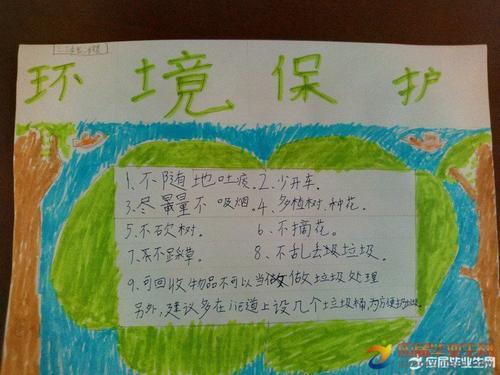 环境保护
1、不随地吐痰。2、少开车。
3、尽量不吸烟。4、多植树、种花。
5、不砍树。 6、不摘花。
7、不踩草。 8、不乱丢圾垃圾。
9、可回收物品不可以当做做垃圾处理
另外，建议多在道上设几个垃圾桶，为方便扔垃圾。
应届毕业生网
应届毕业生网